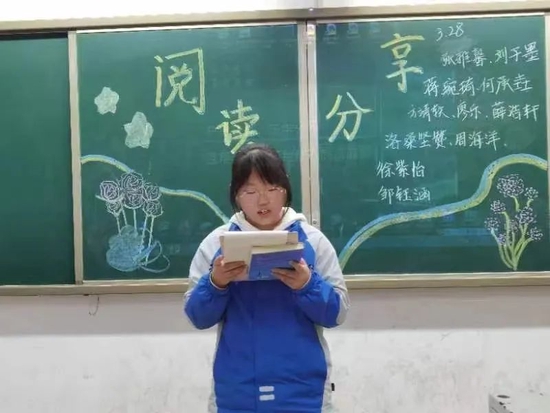 阅读分享
3.28
张雅馨、刘子墨
蒋琬琦、何承垚
廖乐、薛皓轩
洛桑坚赞、周海洋、
徐紫怡
邹钰涵